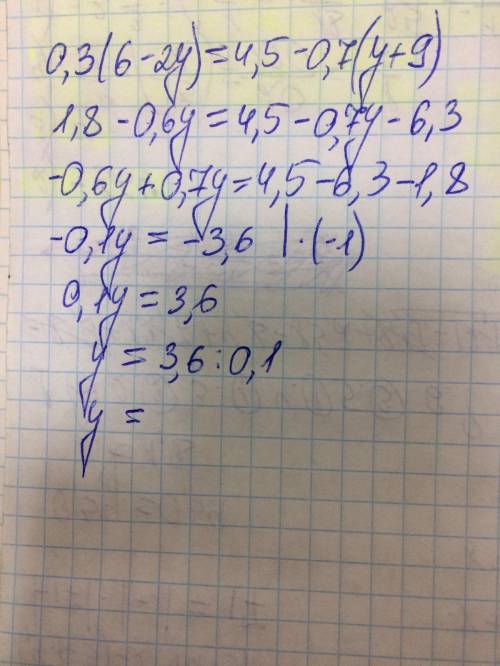 0,3(6-2y)=4,5-0,7(y+9)
1,8-0,6y=4,5-0,7y-6,3
-0,6y+0,7y=4,5-6,3-1,8
-0,1y = -3,6 |·(-1)
0,1y = 3,6
y = 3,6:0,1
y =